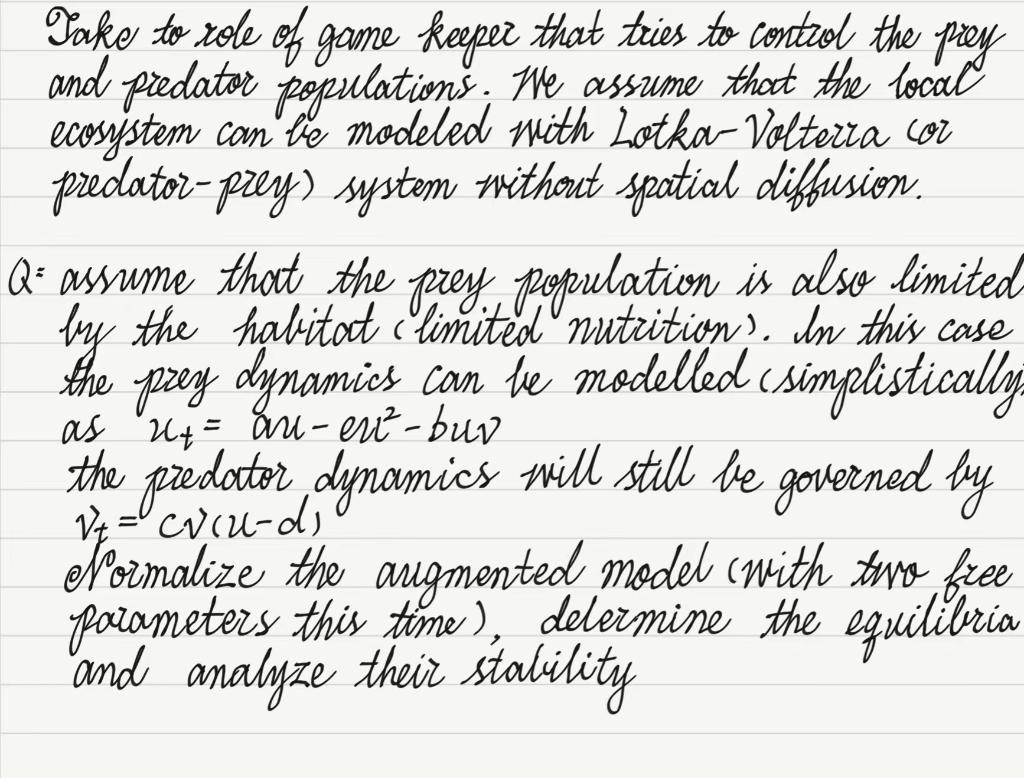 Take to role of game keeper that tries to control the prey
and predator populations. We assume that the local
ecosystem can be modeled with Lotka-Volterra (or
predator-prey) system without spatial diffusion.
Q: assume that the prey population is also limited
by the habitat (limited nutrition). In this case
the prey dynamics can be modelled (simplistically)
as u_t = au - eu² - buv
the predator dynamics will still be governed by
v_t = cv(u-d)
Normalize the augmented model (with two free
parameters this time), determine the equilibria
and analyze their stability